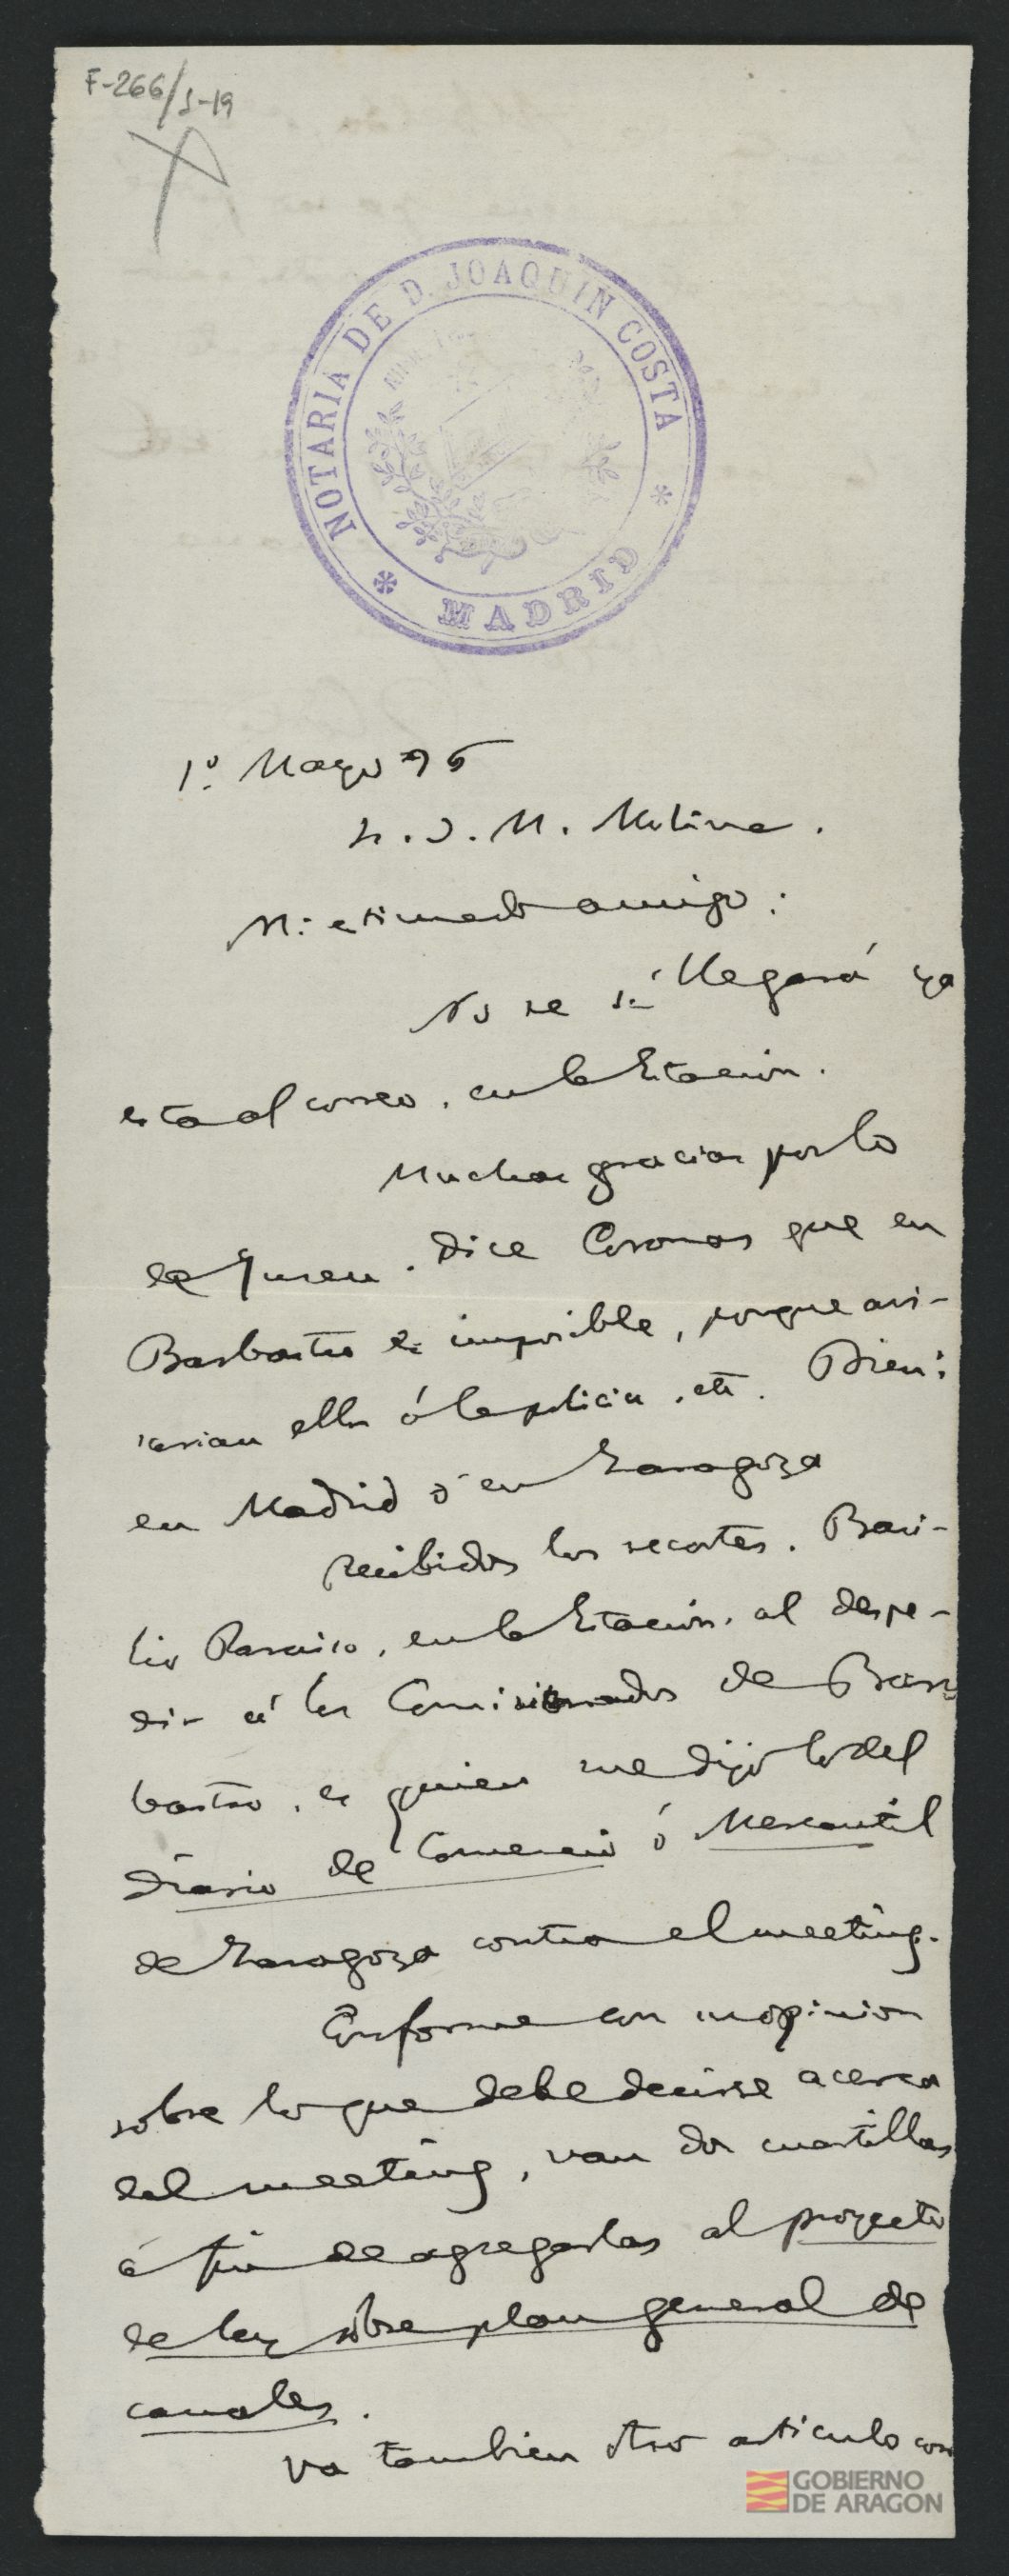 F-266/1-19
NOTARIA DE D. JOAQUIN COSTA
* MADRID *
1º. Mayo 96
S. D. M. Molina.
Mi estimado amigo:
No se si llegará ya
esta al correo, en la Estacion.
Muchas gracias por lo
de. Dice Coronas que en
Barbastro es imposible, porque avi-
sarian ellos ó la policia, etc. Bien:
en Madrid ó en Zaragoza
Recibidos los recortes. Basi-
lio Paraiso, en la Estacion, al despe-
dir á los Comisionados de Bar-
bastro, es quien me dijo lo del
diario de Comercio ó Mercantil
de Zaragoza contra el meeting.
Conforme con su opinion
sobre lo que debe decirse acerca
del meeting, van dos cuartillas
á fin de agregarlas al proyecto
de ley sobre plan general de
canales.
Va tambien otro articulo con
GOBIERNO
DE ARAGON